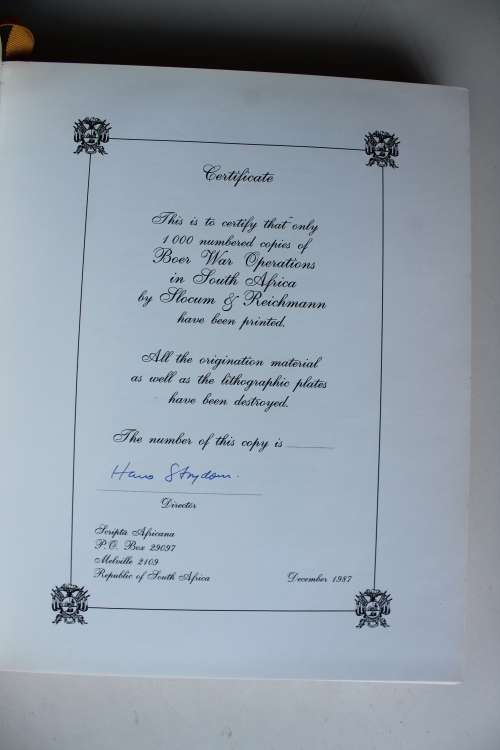 Certificate
This is to certify that only
1 000 numbered copies of
Boer War Operations
in South Africa
by Slocum & Reichmann
have been printed.
All the origination material
as well as the lithographic plates
have been destroyed.
The number of this copy is
Hans Strydom.
Director
Scripta Africana
P.O. Box 29097
Melville 2109
Republic of South Africa
December 1987